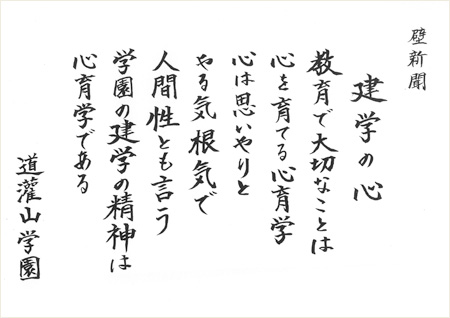 壁新聞
建学の心
教育で大切なことは
心を育てる心育学
心は思いやりと
やる気根気で
人間性とも言う
学園の建学の精神は
心育学である
道灌山学園